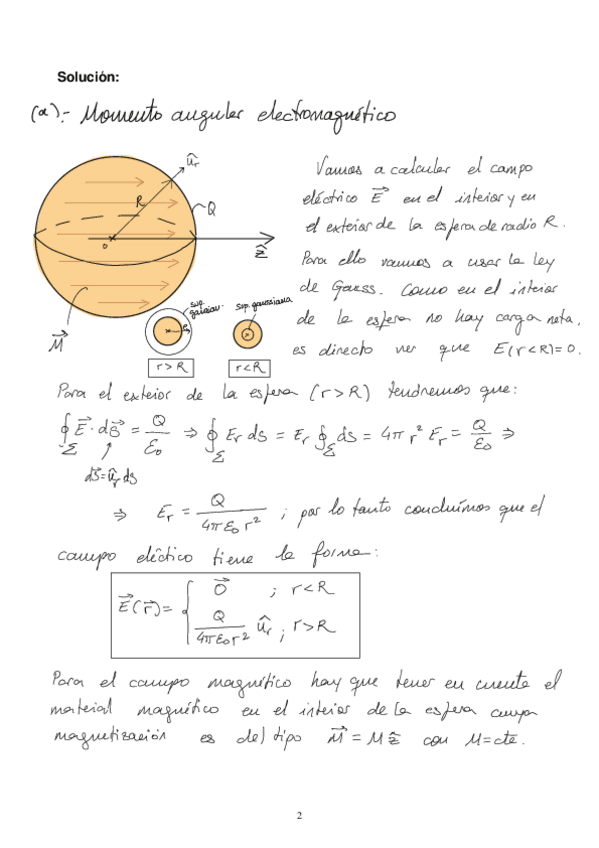 Solución:
(a).- Momento angular electromagnético
û_r
R
Q
o
ẑ
M⃗
sup. gaussian.
sup. gaussiana
r > R
r < R
Vamos a calcular el campo
eléctrico E⃗ en el interior y en
el exterior de la esfera de radio R.
Para ello vamos a usar la ley
de Gauss. Como en el interior
de la esfera no hay carga neta,
es directo ver que E(r<R)=0.
Para el exterior de la esfera (r>R) tendremos que:
∮_Σ E⃗·dS⃗ = Q/ε₀ ⇒ ∮_Σ E_r dS = E_r ∮_Σ dS = 4π r² E_r = Q/ε₀ ⇒
dS⃗=û_r dS
⇒ E_r = Q/(4πε₀ r²) ; por lo tanto concluímos que el
campo eléctico tiene la forma:
E⃗(r⃗)= { 0⃗ ; r<R
Q/(4πε₀r²) û_r ; r>R
Para el campo magnético hay que tener en cuenta el
material magnético en el interior de la esfera cuya
magnetización es del tipo M⃗ = M ẑ con M=cte.
2